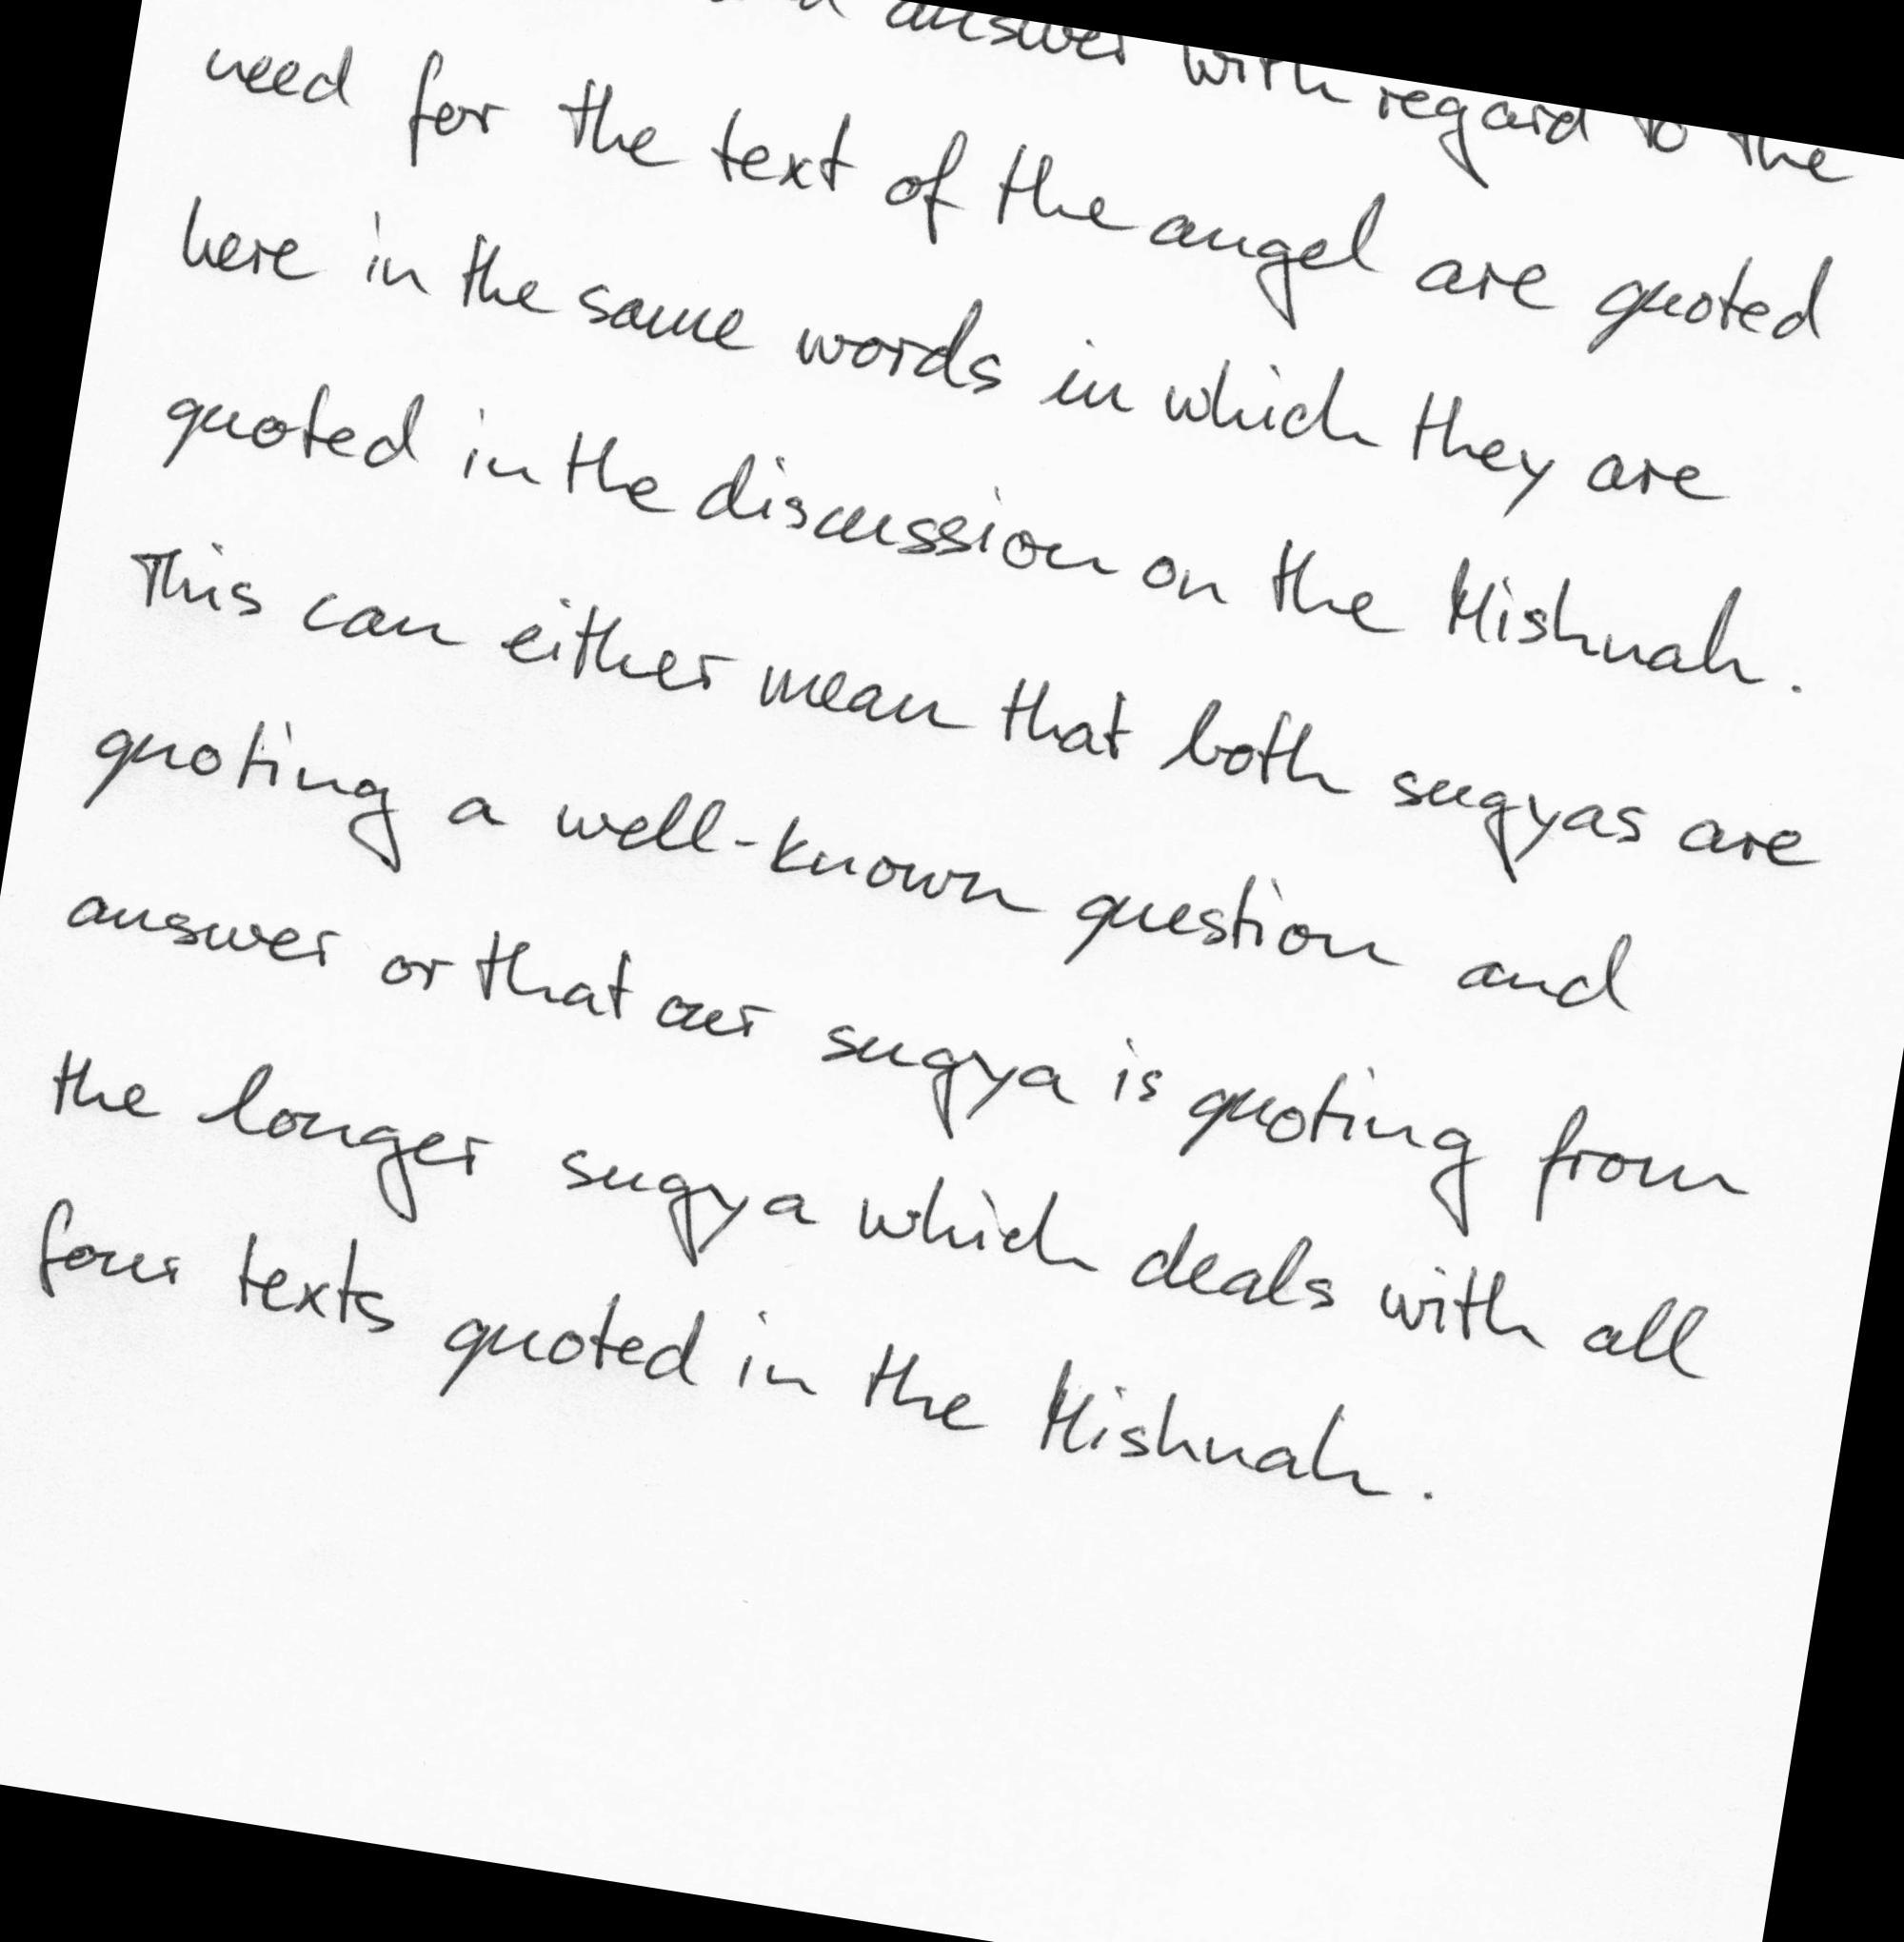 answer with regard to the
need for the text of the angel are quoted
here in the same words in which they are
quoted in the discussion on the Mishnah.
This can either mean that both sugyas are
quoting a well-known question and
answer or that our sugya is quoting from
the longer sugya which deals with all
four texts quoted in the Mishnah.